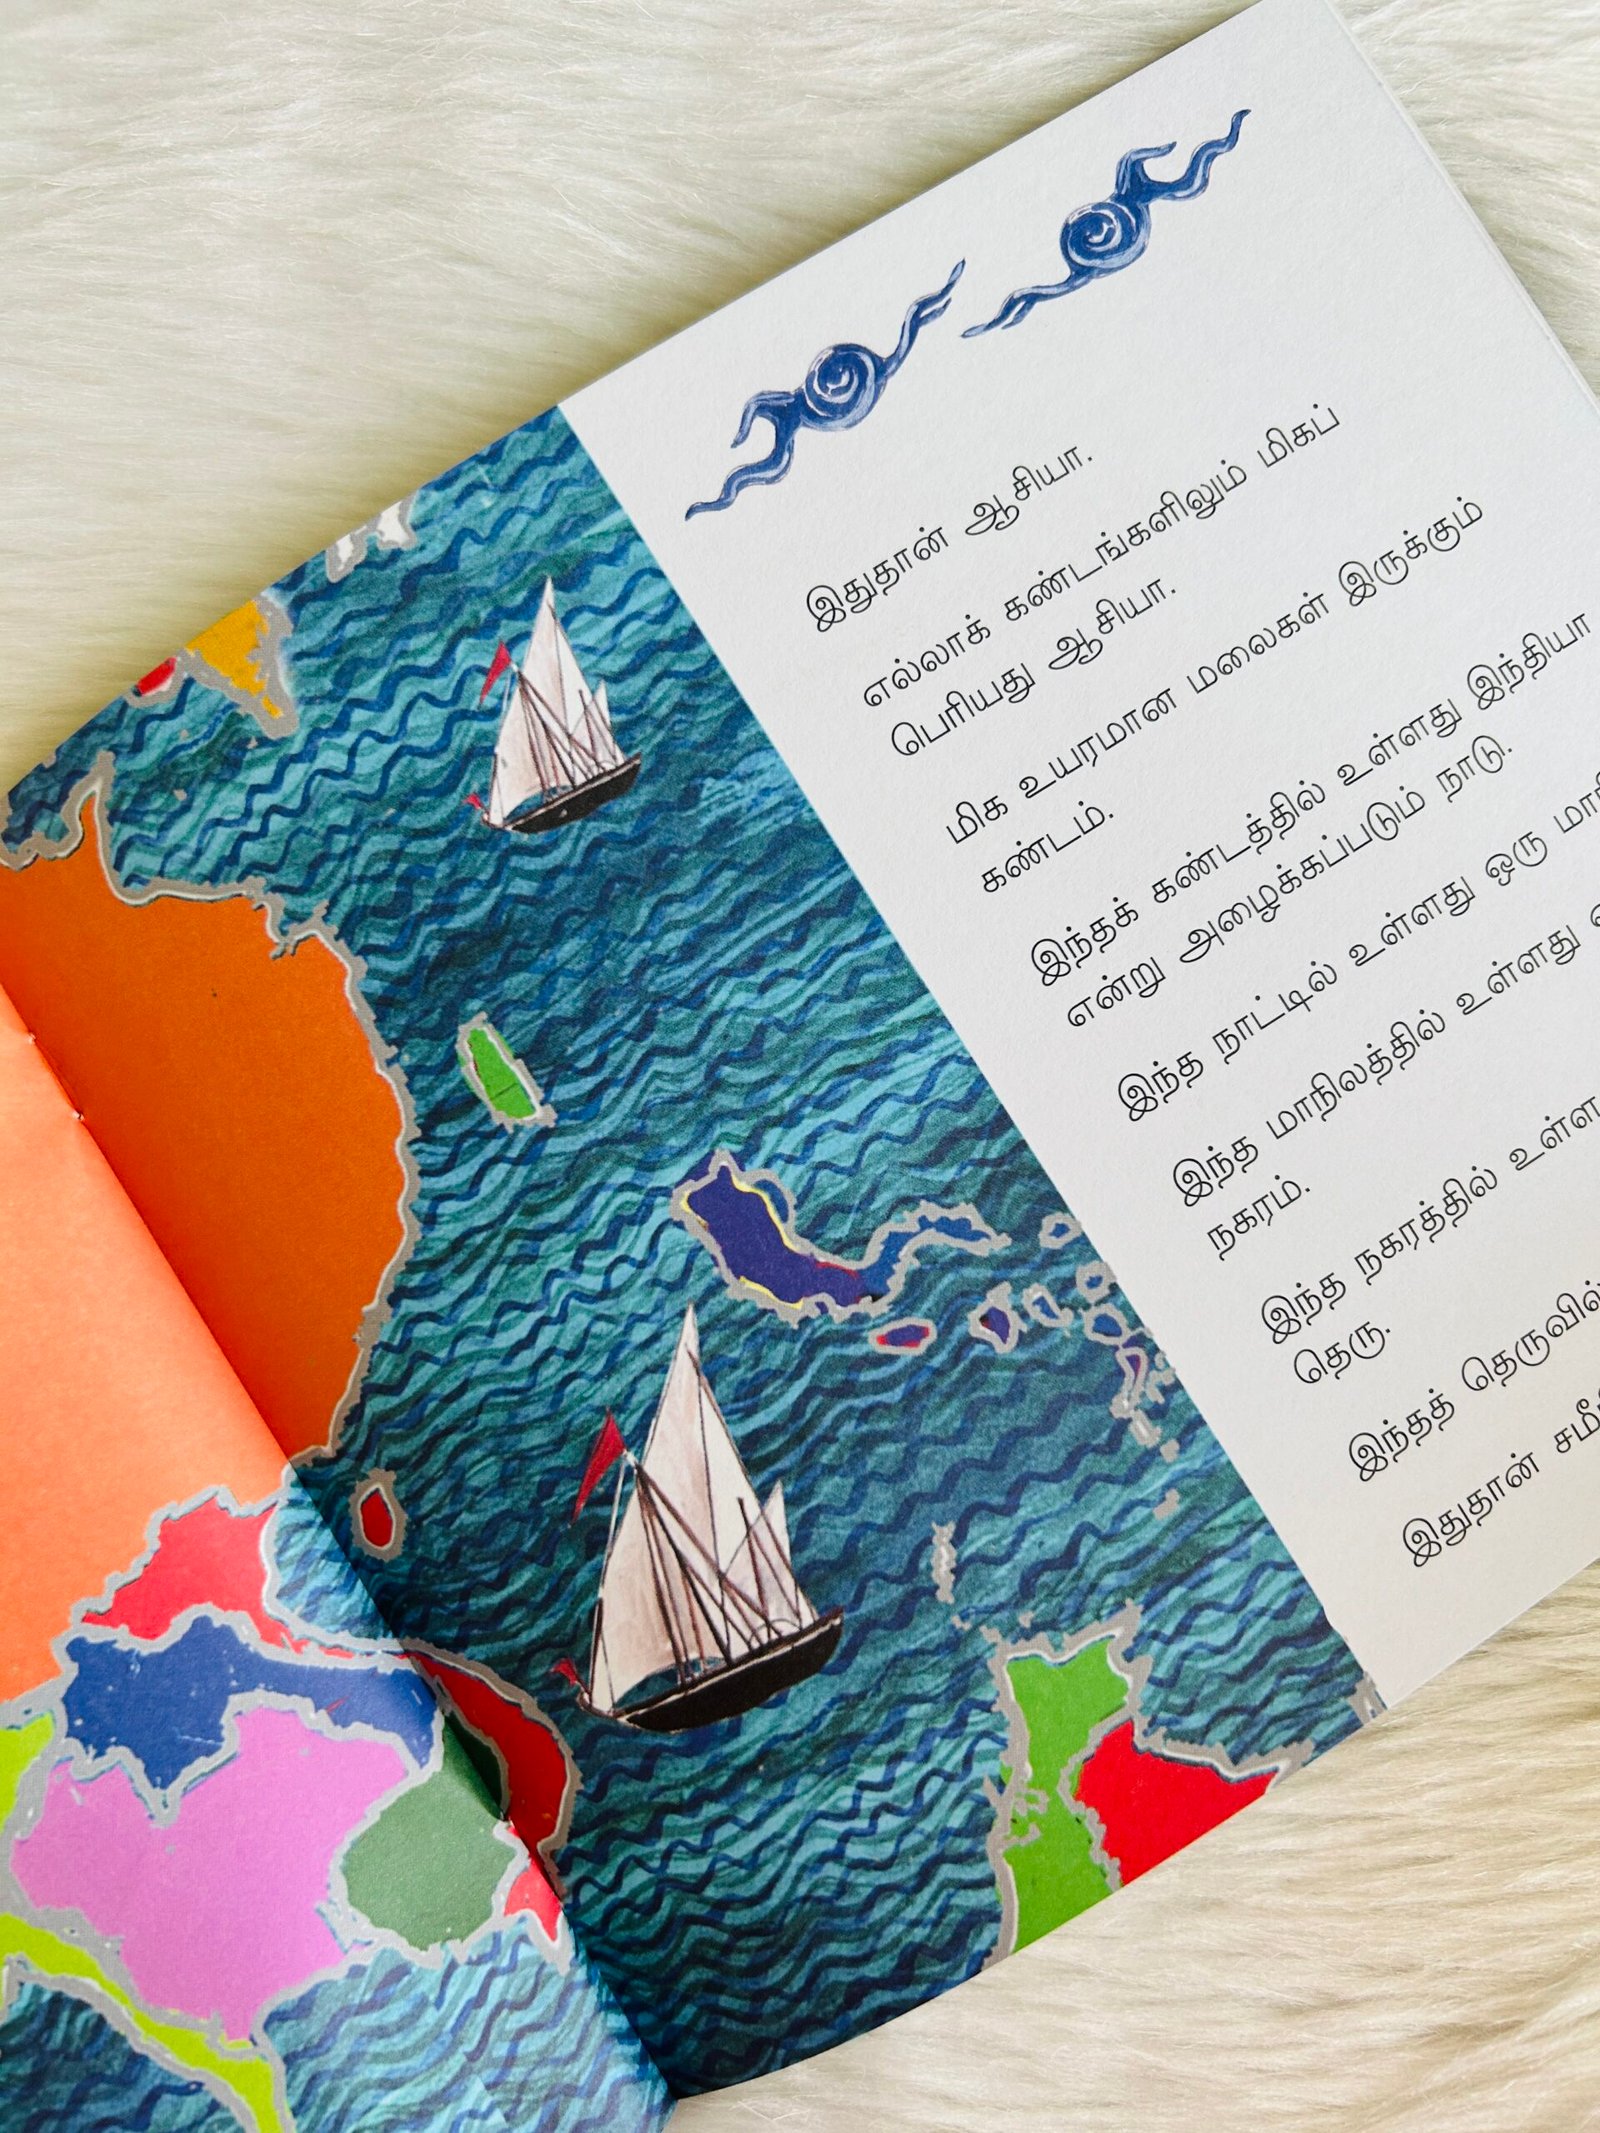 இதுதான் ஆசியா.
எல்லாக் கண்டங்களிலும் மிகப்
பெரியது ஆசியா.
மிக உயரமான மலைகள் இருக்கும்
கண்டம்.
இந்தக் கண்டத்தில் உள்ளது இந்தியா
என்று அழைக்கப்படும் நாடு.
இந்த நாட்டில் உள்ளது ஒரு
இந்த மாநிலத்தில் உள்ளது
நகரம்.
இந்த நகரத்தில்
தெரு.
இந்தத் தெருவில்
இதுதான்